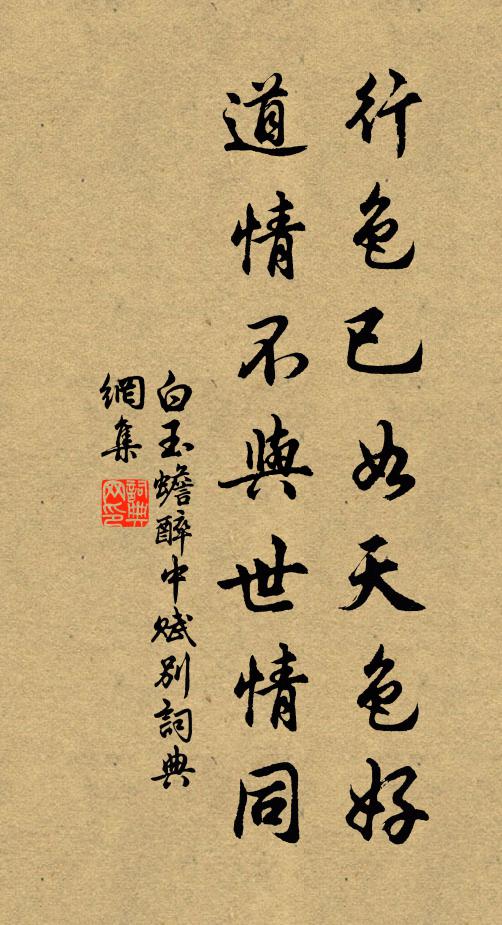 行色已如天色好
道情不與世情同
白玉蟾醉中賦別詞典
網集
詞典網印